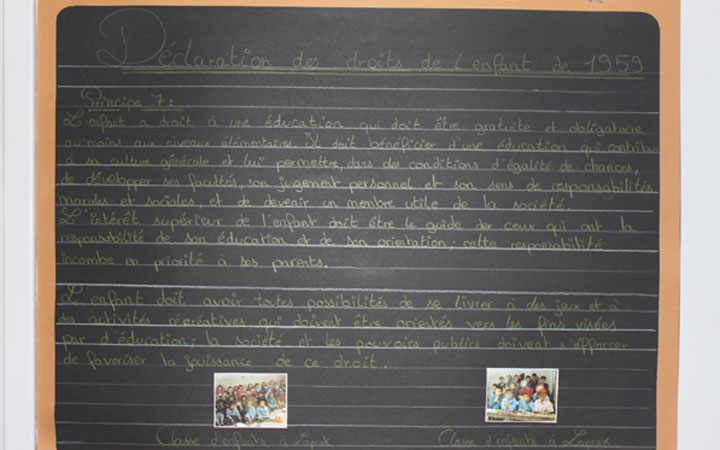 Déclaration des droits de l'enfant de 1959
Principe 7:
L'enfant a droit à une éducation qui doit être gratuite et obligatoire
au moins aux niveaux élémentaires. Il doit bénéficier d'une éducation qui contribue
à sa culture générale et lui permettre, dans des conditions d'égalité de chances,
de développer ses facultés, son jugement personnel et son sens de responsabilités
morales et sociales, et de devenir un membre utile de la société.
L'intérêt supérieur de l'enfant doit être le guide der ceux qui ont la
responsabilité de son éducation et de son orientation; cette responsabilité
incombe en priorité à ses parents.
L'enfant doit avoir toutes possibilités de se livrer à des jeux et à
des activités récréatives, qui doivent être orientés vers les fins visées
par d'éducation; la société et les pouvoirs publics doivent s'efforcer
de favoriser la jouissance de ce droit.
Classe d'enfants à
Classe d'enfants à